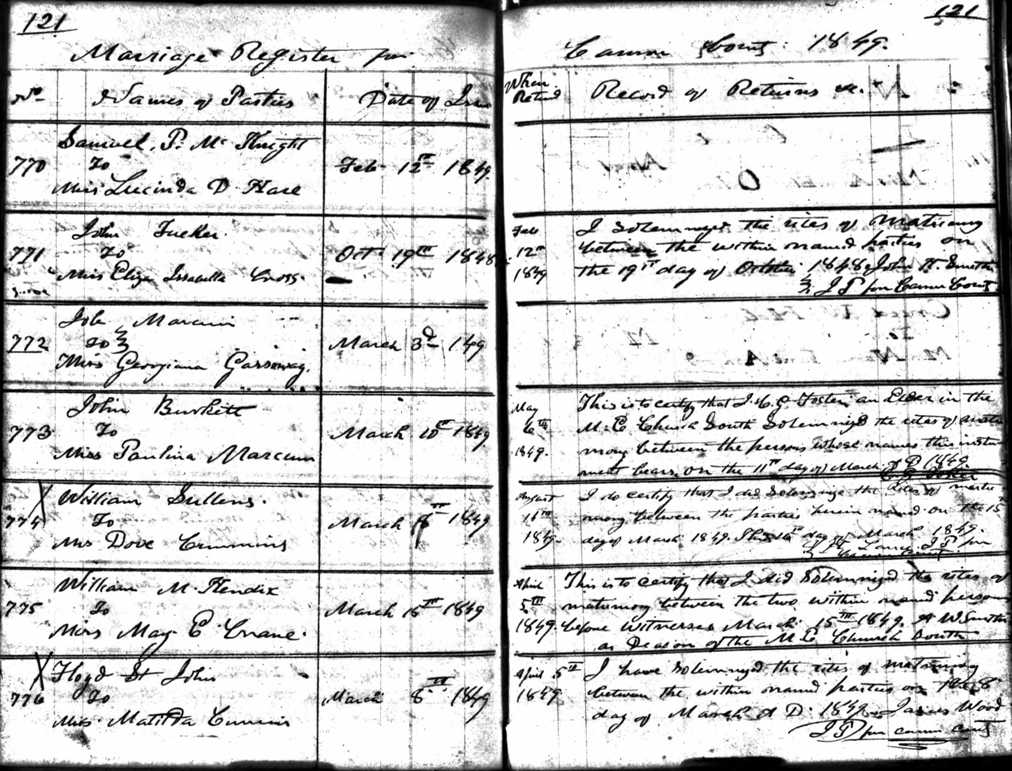 121
Marriage Register for
No
Names of Parties
Date of Issue
770
Samuel P. Mc Knight
To
Miss Lucinda D. Hare
Feb 12th 1849
771
John Tucker
To
Miss Eliza Issabella Cross
Oct 19th 1848
772
Marcum
To
Miss Georgiana Gassoway.
March 3d 149
773
John Burkett
To
Miss Paulina Marcum
March 10th 1849
774
William Sullens.
To
Mrs Dove Cummins
March 8th 1849
775
William M. Hendix
To
Miss May E Crane.
March 15th 1849
776
Floyd St John
To
Miss Matilda Cummins
March 8th 1849
121
Cannon County 1849.
When Retnd
Record of Returns &c.
Feb
12th
1849
I solemnized the rites of Matrimony
between the within named parties on
the 19th day of October 1848. John H. Smith
J P for Cannon County
May
6th
1849.
This is to certify that I. Foster an Elder in the
M. E. Church South Solemnized the rites of matri
mony between the persons whose names this instru
ment bears, on the 11th day of March A D 1849.
Foster
August
16th
1849.
I do certify that I did solemnize the rites of matri
mony between the parties herein named on the 15th
day of March 1849. This day of March 1849.
J P for
April
5th
1849.
This is to certify that I did Solemnized the rites of
matrimony between the two within named persons
before witnesses March 15th 1849. A W Smith
as Deacon of the M. E. Church South
April 5th
1849.
I have solemnized the rites of matrimony
between the within named parties on 8
day of March A D. 1849. James Wood
J P for Cannon County